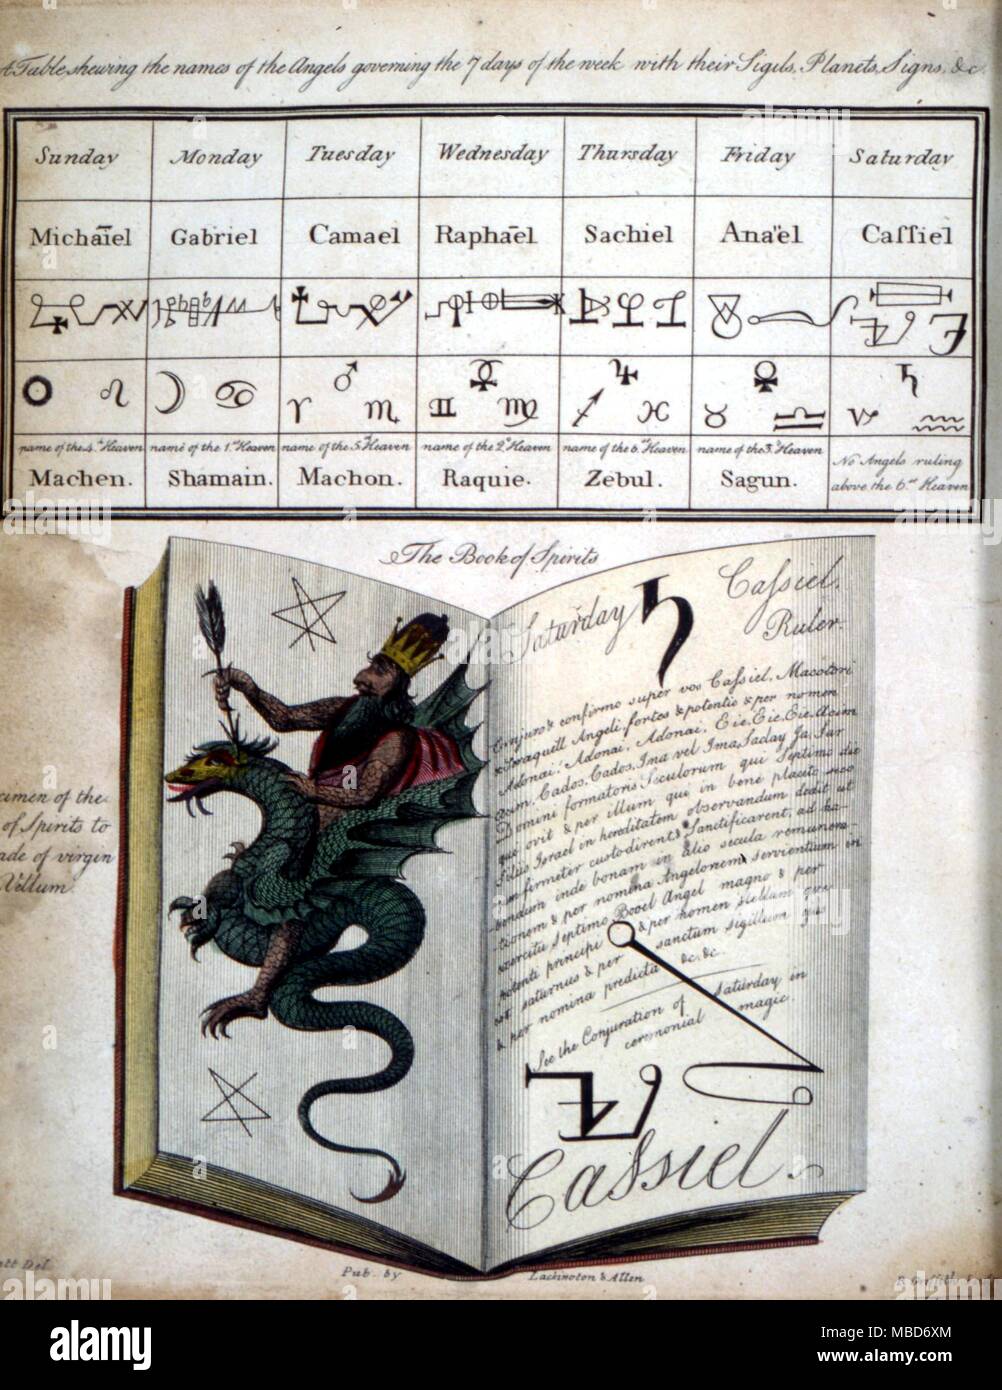 A Table shewing the names of the Angels governing the 7 days of the week with their Sigils, Planets, Signs, &c.
Sunday Monday Tuesday Wednesday Thursday Friday Saturday
Michaïel Gabriel Camael Raphaël Sachiel Ana"el Caſſiel
name of the 4.th Heaven name of the 1.st Heaven name of the 5.th Heaven name of the 2.d Heaven name of the 6.th Heaven name of the 3.d Heaven No Angels ruling
Machen. Shamain. Machon. Raquie. Zebul. Sagun. above the 6.th Heaven
The Book of Spirits
Saturday ♄ Caſsiel.
Ruler.
Conjuro & confirmo super vos Caſsiel, Macotori
& Seraquiell Angeli fortes & potentie & per nomen
Adonai, Adonai, Adonai, Eie, Eie, Eie, Acim
Acim, Cados, Cados, Ima vel Ima, Saday Ja, Sar
Domini formatoris Seculorum qui Septimo die
quo ovit & per illum qui in bene placito suo
Filiis Israel in hereditatem observandum dedit ut
eum firmeter custodirent & Sanctificarent, ad ha-
bendum inde bonam in alio secula remunera-
tionem & per nomina Angelonem servientium in
exercitu septimo Booel Angel magno &
potenti principi & per nomen stellum que
est saturnus & per sanctum sigillum que
& per nomina predicta &c. &c.
See the Conjuration of Saturday in
ceremonial magic.
Caſsiel.
cimen of the
of Spirits to
ade of virgin
Vellum.
ett Del.
Pub. by Lackington & Allen
R. Griffith
alamy
alamy stock photo
Image ID: MBD6XM
www.alamy.com